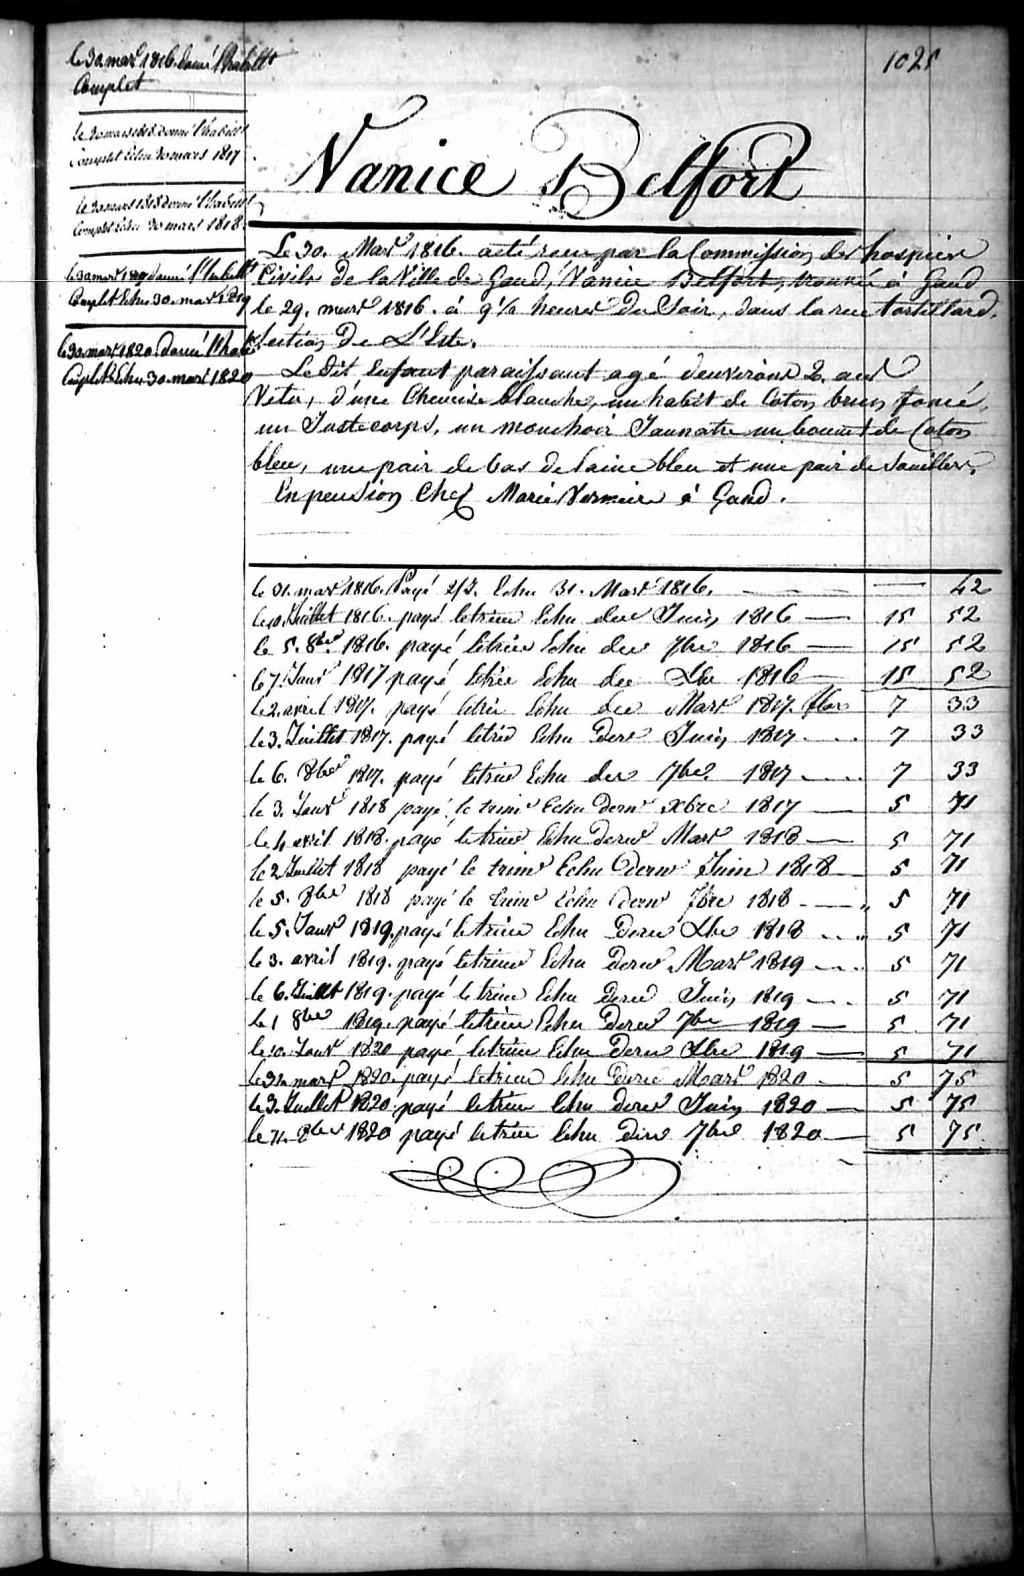 1025
le 30 mars 1816. donné l'habillt
Complet
le 30 mars 1816 donné l'habillt
Complet Echu 30 mars 1817
le 30 mars 1818 donné l'habillt
Complet Echu 30 mars 1818.
le 30 mars 1819 donné l'habillt
Complet Echu 30. mars 1819
le 30 mars 1820. donné l'habt
Complet Echu 30. mars 1820
Nanice Belfort
Le 30. Mars 1816. acté recu par la Commission des hospices
Civils de la Ville de Gand, Nanice Belfort, trouvée à Gand
le 29. mars 1816. à 9½ heures Du Soir, dans la rue tortillard.
Section De L'Este.
Le Dit Enfant paraissant agé denvirons 2. ans
Vetu, d'une Chemise blanche, un habit de Coton brun foncé,
un Juste corps, un mouchoir Jaunatre un bonnet de Coton
bleu, une pair de bas de laine bleu et une pair de Souilliers.
En pension Chez Marie Vermeire à Gand.
le 31. mars 1816. Payé 2/J. Echu 31. Mars 1816. — 42
le 10. Juillet 1816. payé letrim Echu der Juin 1816 — 15 52
le 5. 8bre 1816. payé letrim Echu der 7bre 1816 — 15 52
le 7. Janv 1817 payé letrim Echu der Xbre 1816 — 15 52
le 2. avril 1817. payé letrim Echu der Mars 1817. flor 7 33
le 3. Juillet 1817. payé letrim Echu der Juin 1817 . . . 7 33
le 6. 8bre 1817. payé letrim Echu der 7bre 1817 . . . . 7 33
le 3. Janv 1818 payé le trimr Echu dernr xbre 1817 — 5 71
le 4 avril 1818. payé letrim Echu Derer Mars 1818 — 5 71
le 2 Juillet 1818 payé le trimr Echu Dernr Juin 1818 — 5 71
le 5. 8bre 1818 payé le trimr Echu Dernr 7bre 1818 - — „ 5 71
le 5. Janv 1819. payé letrim Echu Derer Xbre 1818 . . „ 5 71
le 3. avril 1819. payé letrim Echu Derer Mars 1819 . . . 5 71
le 6. Juillet 1819. payé letrim Echu Derer Juin 1819 — . 5 71
le 1 8bre 1819. payé letrim Echu Derer 7bre 1819 — 5 71
le 10. Janv 1820 payé letrim Echu Derer Xbre 1819 — 5 71
le 31 mars 1820. payé letrim Echu Derer Mars 1820 . 5 75
le 3. Juillet 1820 payé letrim Echu derer Juin 1820 — 5 75
le 71. 8bre 1820 payé letrim Echu derer 7bre 1820 — 5 75